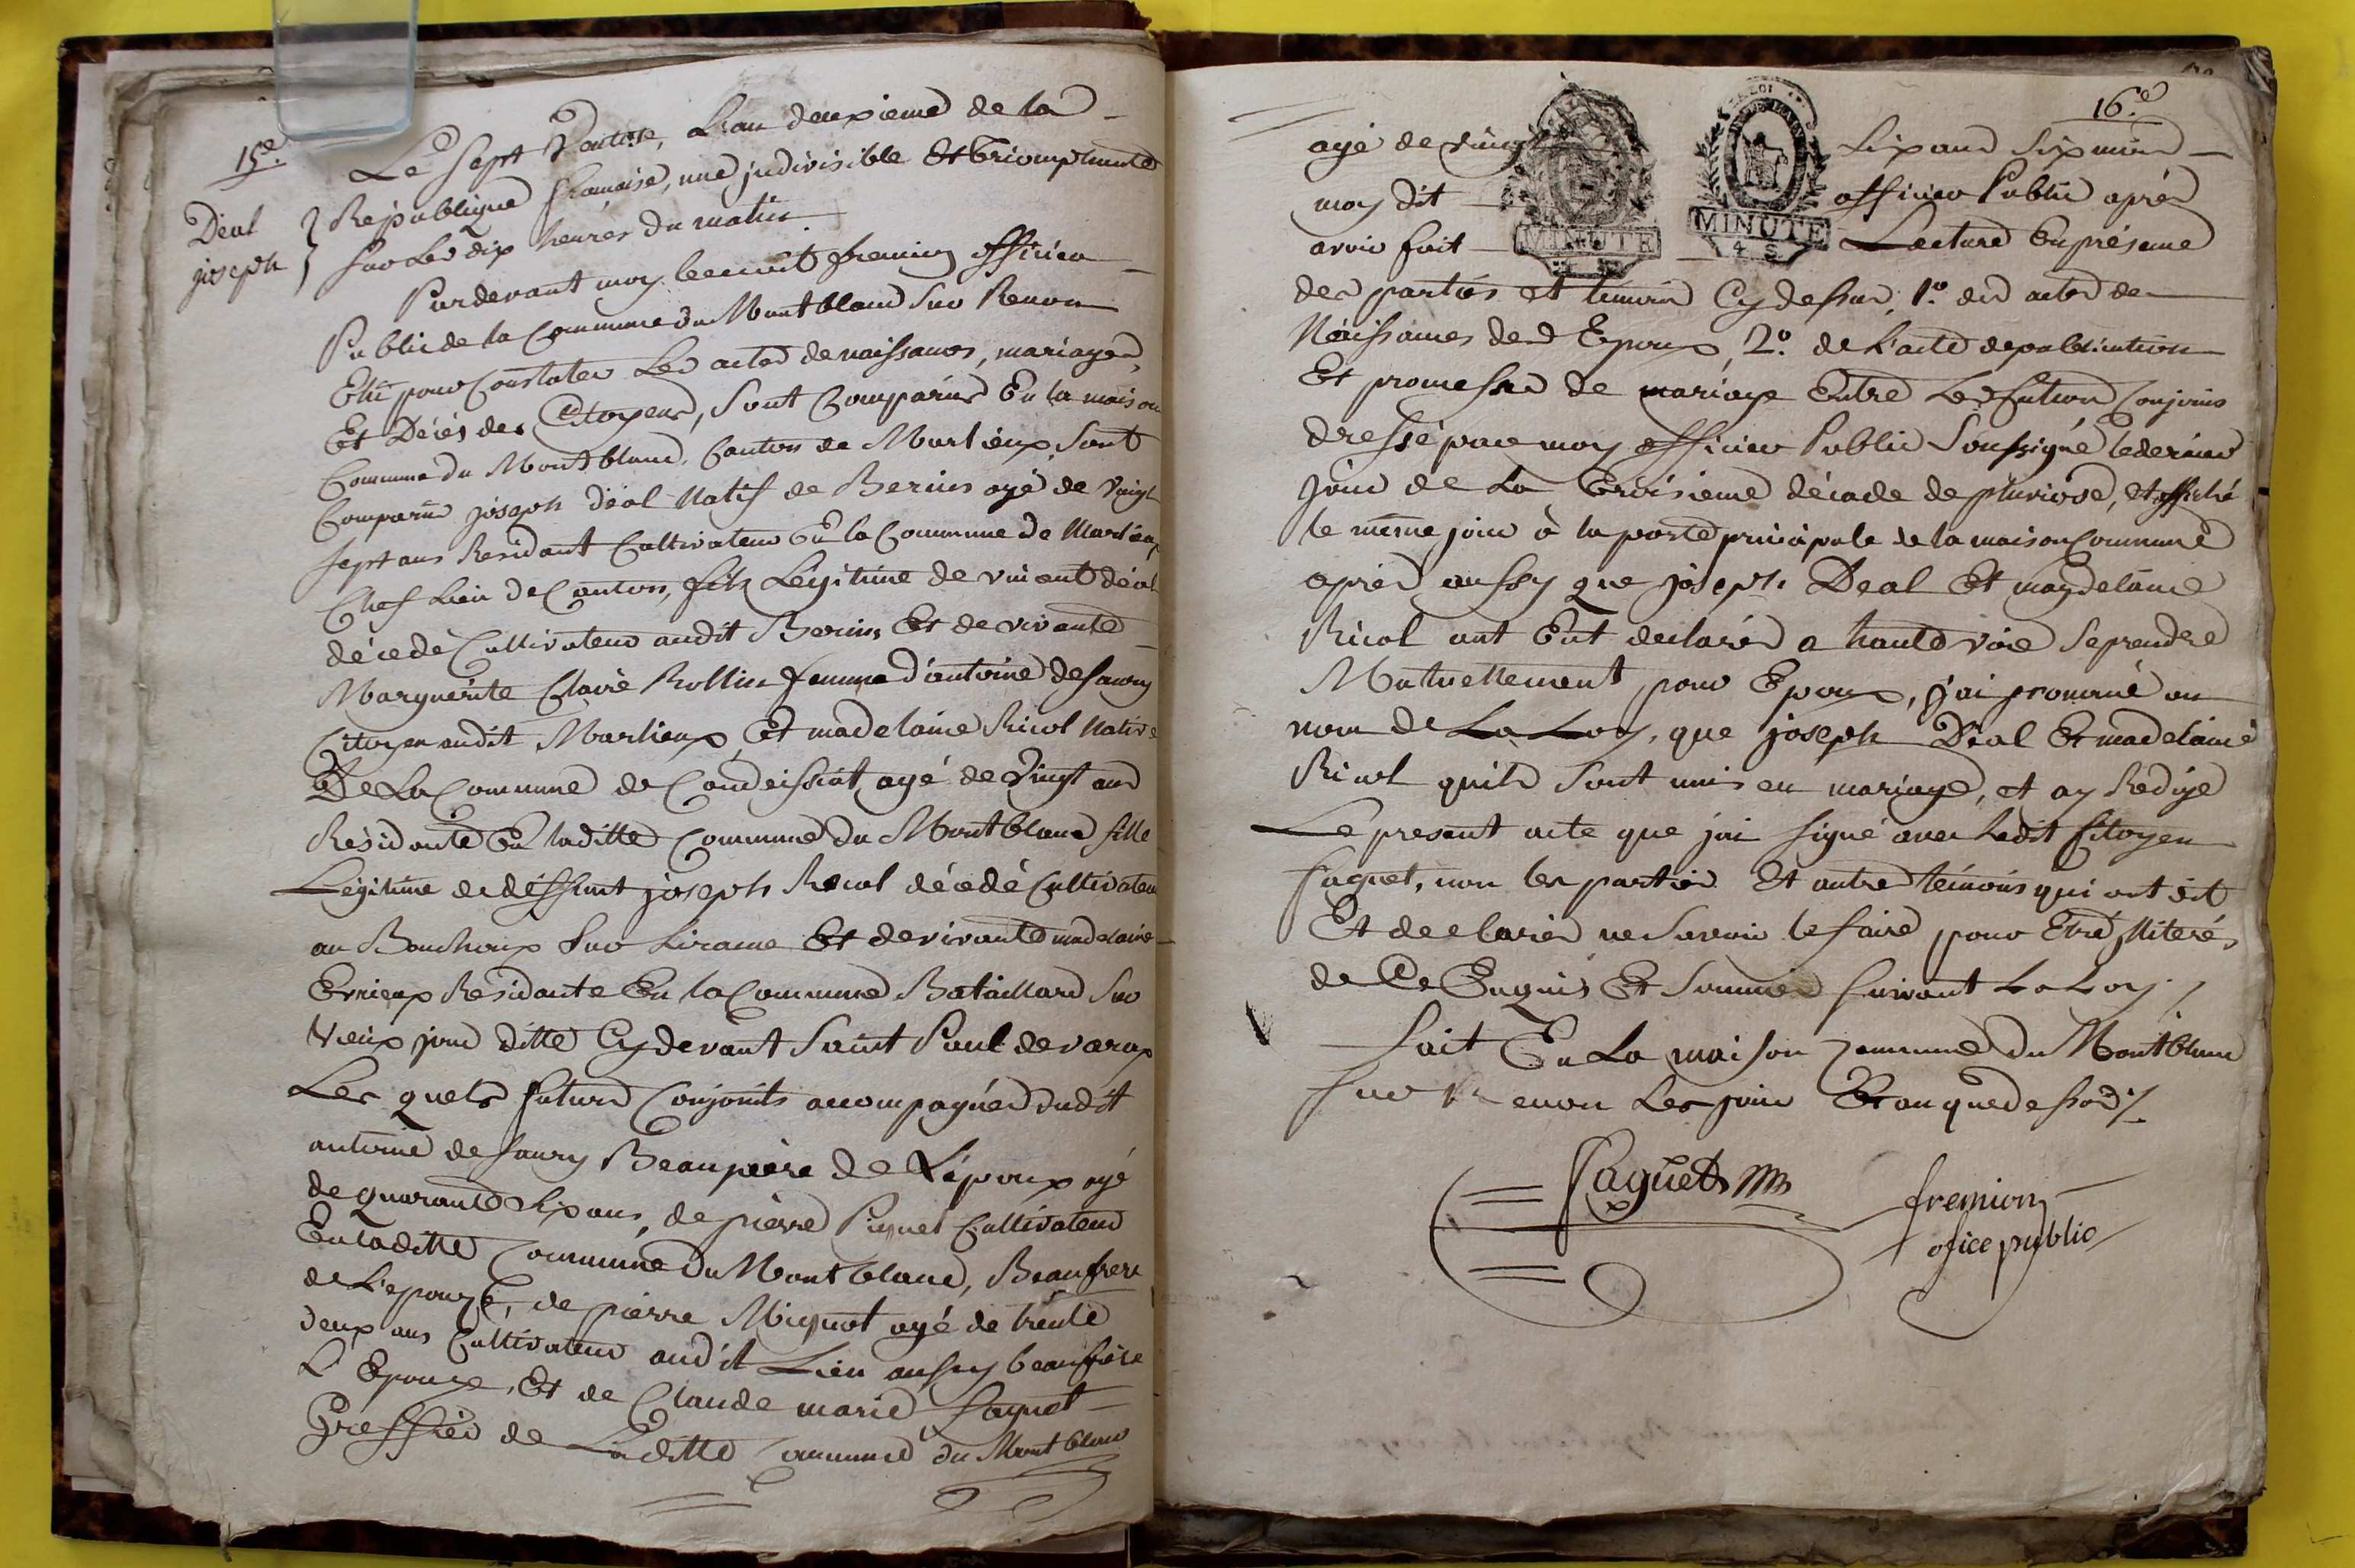 15e.
Deal
joseph
Le sept Ventose, L'an deuxieme de la
Republique francaise, une indivisible Et triomphante
sur Les dix heures du matin
Pardevant moy benoit fremion officier
Public de la Commune du Montblanc sur Renon
Elû pour Constater Les actes de naissances, mariages,
Et Décés des Citoyens, sont Comparus En la maison
Commune du Montblanc, Canton de Marlieux, sont
Comparus joseph déal Natif de Bereins agé de vingt
sept ans Residant Cultivateur En la Commune de Marlieux
Chef Lieu de Canton, fils Légitime de vincent déal
décedé Cultivateur audit Bereins Et de vivante
Marguerite Claire Rollin femme d'antoine desaury
Citoyen audit Marlieux, Et madelaine Ricol Native
De La Commune de Condeissiat, agé de Vingt ans
Residante En laditte Commune du Montblanc fille
Légitime de deffunt joseph Recol décedé Cultivateur
au Bouchoux sur Et de vivante madelaine
Residante En la Commune Bataillard sur
Vieux jonc ditte Cy devant Saint Paul de varax
Les quels futurs Conjoints accompagnés dudit
antoine desaury Beaupére de L'époux agé
de quarante six ans, de pierre Piquet Cultivateur
En laditte Commune du Montblanc, Beaufrere
de L'epouze, de pierre Miguet agé de trente
deux ans Cultivateur audit Lieu aussy beaufrére
L'Epouze, Et de Claude marie faguet
Greffier de Laditte Commune du Montblanc
16e.
agé de vingt six ans six mois
moy dit officier Public aprés
avoir fait Lecture En présence
des parties et temoins Cy dessus, 1o. des actes de
Naissances des Epoux, 2o. de L'acte de publication
Et promesse de mariage Entre Les futurs Conjoins
dressé par moy officier Public soussigné le dernier
jour de La troisieme décade de pluviôse, et affiché
le même jour à la porte principale de la maison Commune
aprés aussy que joseph Deal Et magdelaine
Ricol ont Eut declarés a haute voix se prendre
Mutuellement pour Epoux, j'ai prononcé au
nom de La Loy, que joseph Déal Et madelaine
Ricol quils sont unis en mariage, et ay Redigé
Le present acte que jai signé avec Ledit Citoyen
faguet, non les parties Et autre témoins qui ont dit
Et declarés ne savoir le faire pour Etre
de Ce Enquis Et sommés suivant La Loy /
fait En La maison Commune du Montblanc
sur Renon Les jour Et an que dessus /.
faguet
fremion
ofice public
MINUTE
4 S
MINUTE
4 S